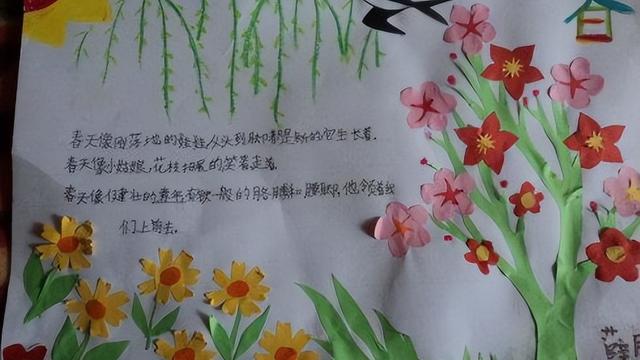 春
春天像刚落地的娃娃,从头到脚都是新的它生长着。
春天像小姑娘,花枝招展的笑着走着
春天像健壮的青年有铁一般的胳膊和腰脚,他领着我
们上前去。